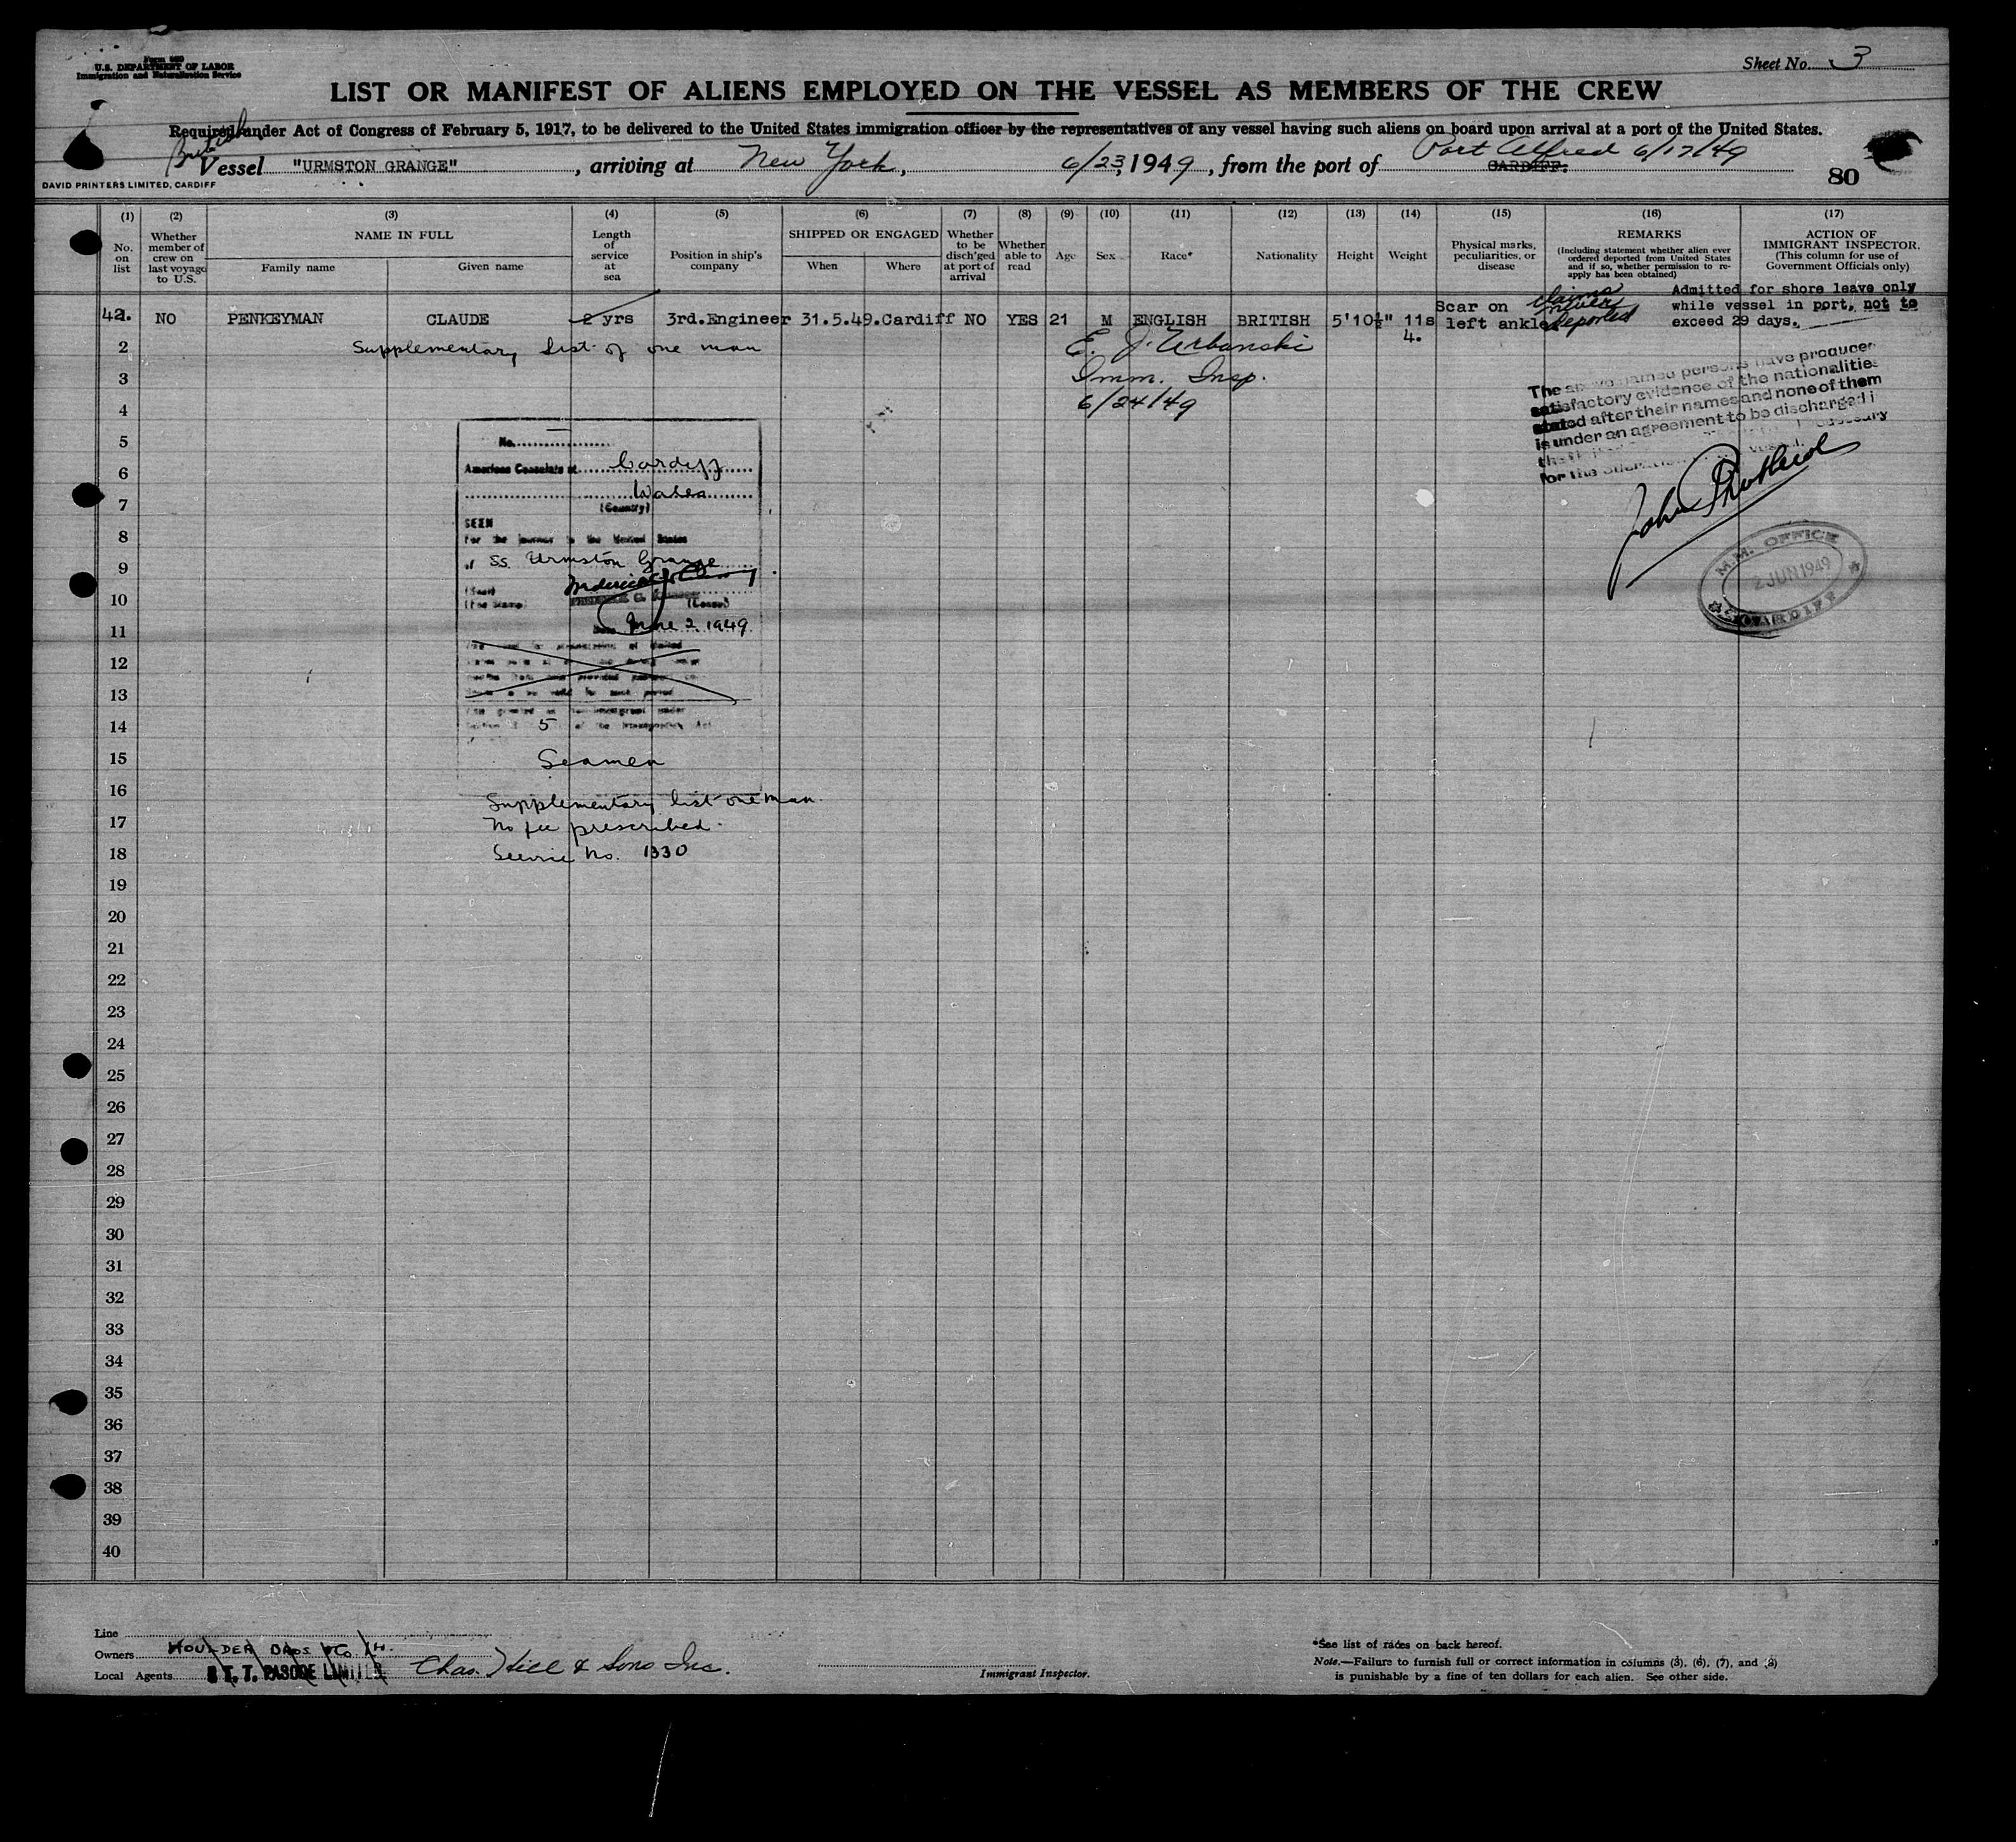 Form 680
U.S. DEPARTMENT OF LABOR
Immigration and Naturalization Service
Sheet No. 3
LIST OR MANIFEST OF ALIENS EMPLOYED ON THE VESSEL AS MEMBERS OF THE CREW
Required under Act of Congress of February 5, 1917, to be delivered to the United States immigration officer by the representatives of any vessel having such aliens on board upon arrival at a port of the United States.
British
Vessel "URMSTON GRANGE", arriving at New York, 6/23, 1949, from the port of CARDIFF. Port Alfred 6/17/49
DAVID PRINTERS LIMITED, CARDIFF
80
(1) (2) (3) (4) (5) (6) (7) (8) (9) (10) (11) (12) (13) (14) (15) (16) (17)
No. on list
Whether member of crew on last voyage to U.S.
NAME IN FULL
Family name
Given name
Length of service at sea
Position in ship's company
SHIPPED OR ENGAGED
When
Where
Whether to be disch'ged at port of arrival
Whether able to read
Age
Sex
Race*
Nationality
Height
Weight
Physical marks, peculiarities, or disease
REMARKS
(Including statement whether alien ever ordered deported from United States and if so, whether permission to re-apply has been obtained)
ACTION OF IMMIGRANT INSPECTOR.
(This column for use of Government Officials only)
42. NO PENKEYMAN CLAUDE 2 yrs 3rd.Engineer 31.5.49. Cardiff NO YES 21 M ENGLISH BRITISH 5'10½" 11s 4. Scar on left ankle
claims never deported
Admitted for shore leave only
while vessel in port, not to
exceed 29 days.
2 Supplementary list of one man
E. J. Urbanski
3 Imm. Insp.
4 6/24/49
The above named persons have produced
satisfactory evidence of the nationalities
stated after their names and none of them
is under an agreement to be discharged i
for the
vessel.
M.M. OFFICE
2 JUN 1949
CARDIFF
5
No.
6
American Consulate at Cardiff
7
Wales
(Country)
SEEN
8
For the journey to the United States
9
of SS. Urmston Grange
10
(Seal)
(Fee Stamp)
(Consul)
11
Date June 2 1949
12
13
14
5 of the Immigration Act
15
Seamen
16
Supplementary list one man.
17
No fee prescribed.
18
Service No. 1330
19
20
21
22
23
24
25
26
27
28
29
30
31
32
33
34
35
36
37
38
39
40
Line
Owners HOULDER BROS & Co. Ltd.
Local Agents T. T. PASCOE LIMITED Chas. Hill & Sons Inc.
Immigrant Inspector.
*See list of races on back hereof.
Note.—Failure to furnish full or correct information in columns (3), (6), (7), and (8)
is punishable by a fine of ten dollars for each alien. See other side.